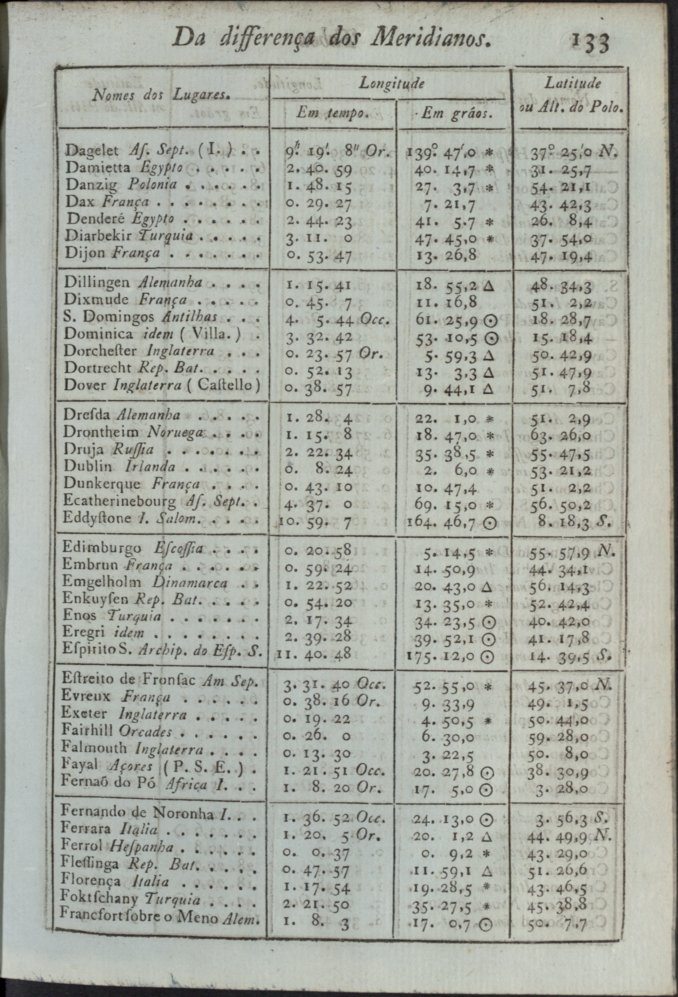 Da differença dos Meridianos. 133
Nomes dos Lugares. Longitude Latitude
Em tempo. Em grãos. ou Alt. do Polo.
Dagelet Aſ. Sept. (I.) . . 9.ʰ 19.ˈ 8" Or. 139.º 47,ˈ0 * 37.º 25,ˈ0 N.
Damietta Egypto . . . . . 2. 40. 59 40. 14,7 * 31. 25,7
Danzig Polonia . . . . . . 1. 48. 15 27. 3,7 * 54. 21,1
Dax França . . . . . . . . 0. 29. 27 7. 21,7 43. 42,3
Denderé Egypto . . . . . . 2. 44. 23 41. 5,7 * 26. 8,4
Diarbekir Turquia . . . . . 3. 11. 0 47. 45,0 * 37. 54,0
Dijon França . . . . . . . 0. 53. 47 13. 26,8 47. 19,4
Dillingen Alemanha . . . . 1. 15. 41 18. 55,2 Δ 48. 34,3
Dixmude França . . . . . 0. 45. 7 11. 16,8 51. 2,2
S. Domingos Antilhas . . . 4. 5. 44 Occ. 61. 25,9 ☉ 18. 28,7
Dominica idem (Villa.) . 3. 32. 42 53. 10,5 ☉ 15. 18,4
Dorcheſter Inglaterra . . . 0. 23. 57 Or. 5. 59,3 Δ 50. 42,9
Dortrecht Rep. Bat. . . . . 0. 52. 13 13. 3,3 Δ 51. 47,9
Dover Inglaterra (Caſtello) 0. 38. 57 9. 44,1 Δ 51. 7,8
Dreſda Alemanha . . . . . 1. 28. 4 22. 1,0 * 51. 2,9
Drontheim Noruega. . . . 1. 15. 8 18. 47,0 * 63. 26,0
Druja Ruſſia . . . . . . . 2. 22. 34 35. 38,5 * 55. 47,5
Dublin Irlanda . . . . . . 0. 8. 24 2. 6,0 * 53. 21,2
Dunkerque França . . . . 0. 43. 10 10. 47,4 51. 2,2
Ecatherinebourg Aſ. Sept. . 4. 37. 0 69. 15,0 * 56. 50,2
Eddyſtone I. Salom. . . . . 10. 59. 7 164. 46,7 ☉ 8. 18,3 S.
Edimburgo Eſcoſſia . . . . 0. 20. 58 5. 14,5 * 55. 57,9 N.
Embrun França . . . . . . 0. 59. 24 14. 50,9 44. 34,1
Emgelholm Dinamarca . . 1. 22. 52 20. 43,0 Δ 56. 14,3
Enkuyſen Rep. Bat. . . . . 0. 54. 20 13. 35,0 * 52. 42,4
Enos Turquia . . . . . . . 2. 17. 34 34. 23,5 ☉ 40. 42,0
Eregri idem . . . . . . . . 2. 39. 28 39. 52,1 ☉ 41. 17,8
Eſpirito S. Archip. do Eſp. S. 11. 40. 48 175. 12,0 ☉ 14. 39,5 S.
Eſtreito de Fronſac Am Sep. 3. 31. 40 Occ. 52. 55,0 * 45. 37,0 N.
Evreux França . . . . . . 0. 38. 16 Or. 9. 33,9 49. 1,5
Exeter Inglaterra . . . . . 0. 19. 22 4. 50,5 * 50. 44,0
Fairhill Orcades . . . . . . 0. 26. 0 6. 30,0 59. 28,0
Falmouth Inglaterra . . . . 0. 13. 30 3. 22,5 50. 8,0
Fayal Açores (P. S. E.) . 1. 21. 51 Occ. 20. 27,8 ☉ 38. 30,9
Fernaõ do Pó Africa I. . . 1. 8. 20 Or. 17. 5,0 ☉ 3. 28,0
Fernando de Noronha I. . . 1. 36. 52 Occ. 24. 13,0 ☉ 3. 56,3 S.
Ferrara Italia . . . . . . . 1. 20. 5 Or. 20. 1,2 Δ 44. 49,9 N.
Ferrol Heſpanha . . . . . . 0. 0. 37 0. 9,2 * 43. 29,0
Fleſſinga Rep. Bat. . . . . 0. 47. 57 11. 59,1 Δ 51. 26,6
Florença Italia . . . . . . 1. 17. 54 19. 28,5 * 43. 46,5
Foktſchany Turquia . . . . 2. 21. 50 35. 27,5 * 45. 38,8
Francfort ſobre o Meno Alem. 1. 8. 3 17. 0,7 ☉ 50. 7,7